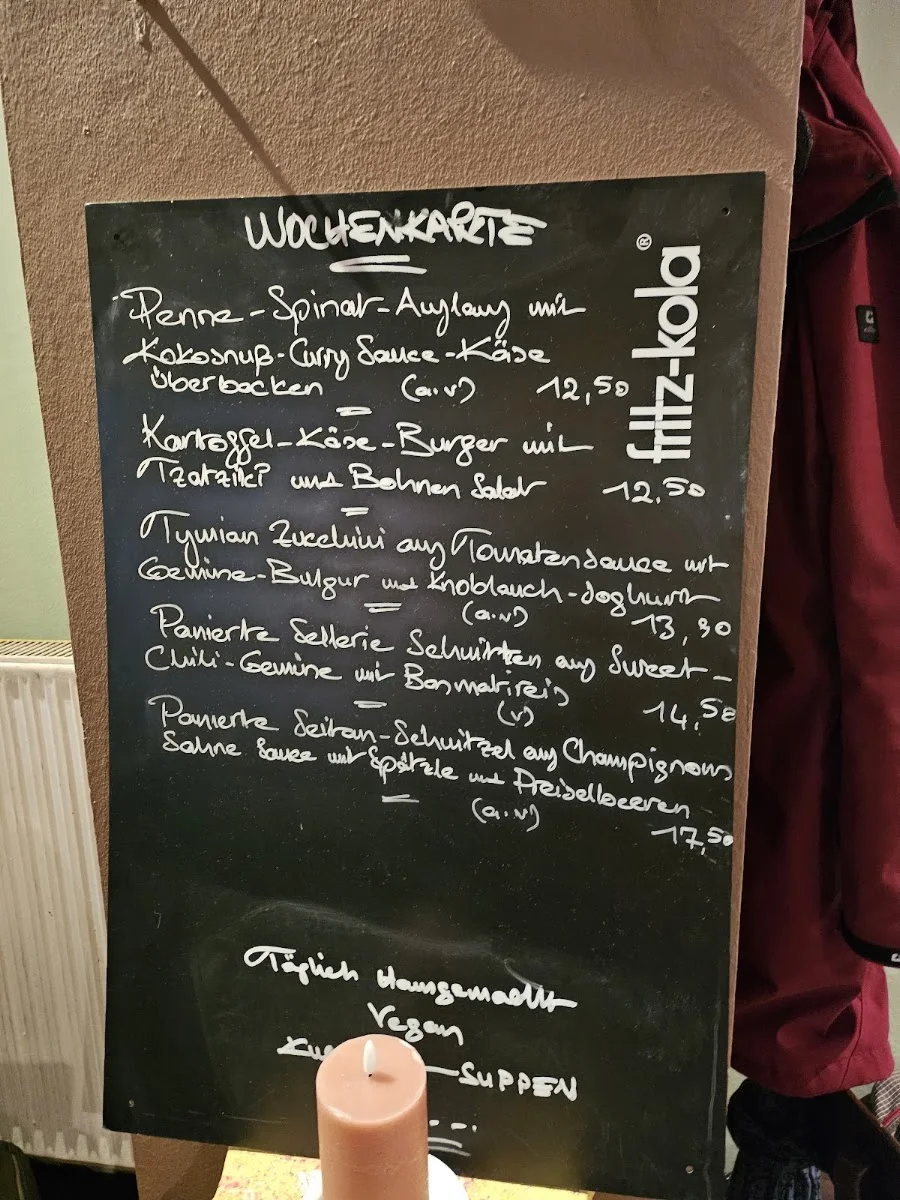 WOCHENKARTE
fritz-kola®
Penne-Spinat-Auflauf mit
Kokosnuß-Curry Sauce-Käse
überbacken (a.v) 12,50
Kartoffel-Käse-Burger mit
Tzatziki und Bohnen Salat 12.50
Tymian Zucchini auf Tomatensauce mit
Gemüse-Bulgur und Knoblauch-Joghurt
(a.v) 13,90
Panierte Sellerie Schnitten auf Sweet-
Chili-Gemüse mit Basmatireis
(v) 14,50
Panierte Seitan-Schnitzel auf Champignons
Sahne Sauce mit Spätzle und Preiselbeeren
(a.v) 17,50
Täglich Hausgemacht
Vegan
-SUPPEN